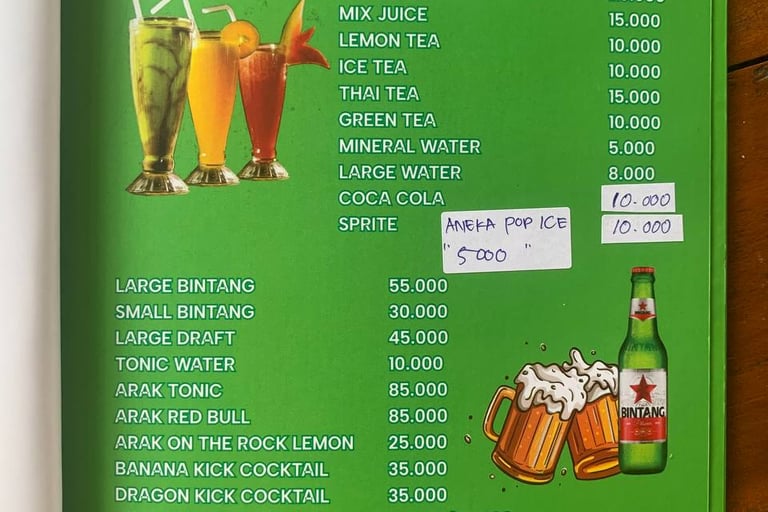 MIX JUICE 15.000
LEMON TEA 10.000
ICE TEA 10.000
THAI TEA 15.000
GREEN TEA 10.000
MINERAL WATER 5.000
LARGE WATER 8.000
COCA COLA 10.000
SPRITE 10.000
ANEKA POP ICE
"5000"
LARGE BINTANG 55.000
SMALL BINTANG 30.000
LARGE DRAFT 45.000
TONIC WATER 10.000
ARAK TONIC 85.000
ARAK RED BULL 85.000
ARAK ON THE ROCK LEMON 25.000
BANANA KICK COCKTAIL 35.000
DRAGON KICK COCKTAIL 35.000
BINTANG
BINTANG
Pilsener